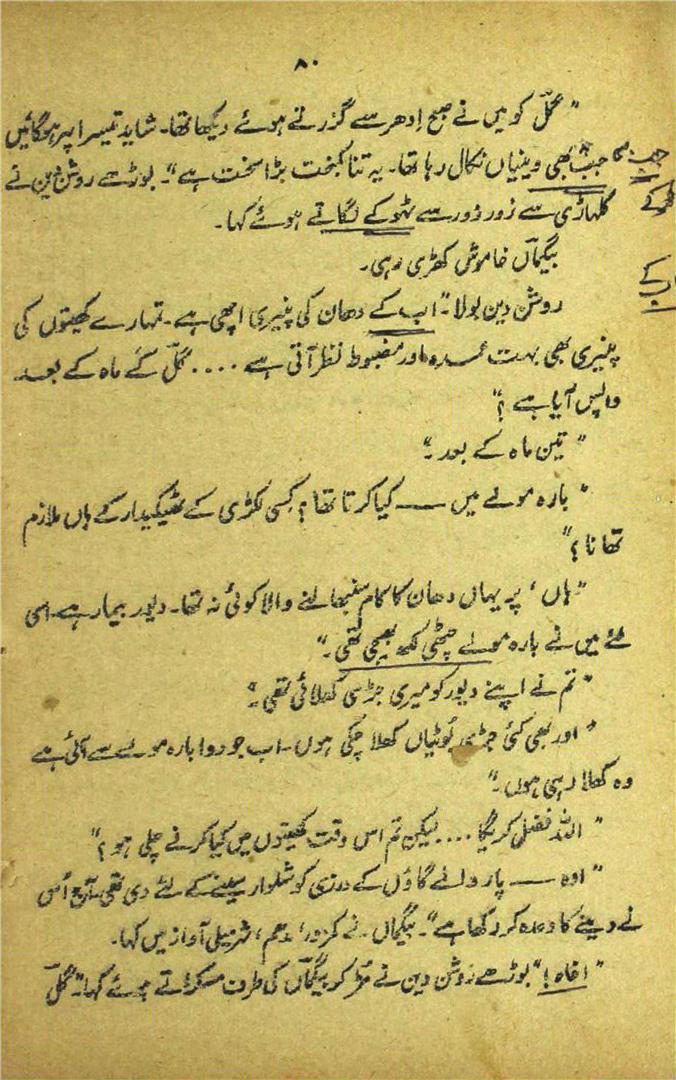 ۸۰
"گلّ کو میں نے صبح اِدھر سے گزرتے ہوئے دیکھا تھا۔ شاید تیسرا پہر ہوگا میں
جب بھی وینیاں نکال رہا تھا۔ یہ تنا کمبخت بڑا سخت ہے"۔ بوڑھے روشن دین نے
کلہاڑی سے زور زور سے ٹھوکے لگاتے ہوئے کہا۔
بیگماں خاموش کھڑی رہی۔
روشن دین بولا۔ "اب کے دھان کی پنیری اچھی ہے۔ تمہارے کھیتوں کی
پنیری بھی بہت عمدہ اور مضبوط نظر آتی ہے .... گلّ کَے ماہ کے بعد
واپس آیا ہے؟"
"تین ماہ کے بعد۔"
"بارہ مولے میں — کیا کرتا تھا؟ کسی لکڑی کے ٹھیکیدار کے ہاں ملازم
تھا نا؟"
"ہاں، پر یہاں دھان کا کام سنبھالنے والا کوئی نہ تھا۔ دیور بیمار ہے اسی
لئے میں نے بارہ مولے چٹھی لکھ بھیجی تھی۔"
"تم نے اپنے دیور کو میری جڑی کھلائی تھی۔"
"اور بھی کئی جڑی بُوٹیاں کھلا چکی ہوں۔ اب جو دوا بارہ مولے سے آئی ہے
وہ کھلا رہی ہوں۔"
"اللہ فضل کریگا .... لیکن تم اس وقت کھیتوں میں کیا کرنے چلی ہو؟"
"اوہ — پار والے گاؤں کے درزی کو شلوار سینے کے لئے دی تھی۔ آج اُس
نے دینے کا وعدہ کر رکھا ہے"۔ بیگماں۔ نے کمزور، مدھم، شرمیلی آواز میں کہا۔
"اخاہ!" بوڑھے روشن دین نے مڑ کر بیگماں کی طرف مسکراتے ہوئے کہا۔ "گلّ
جب
کے